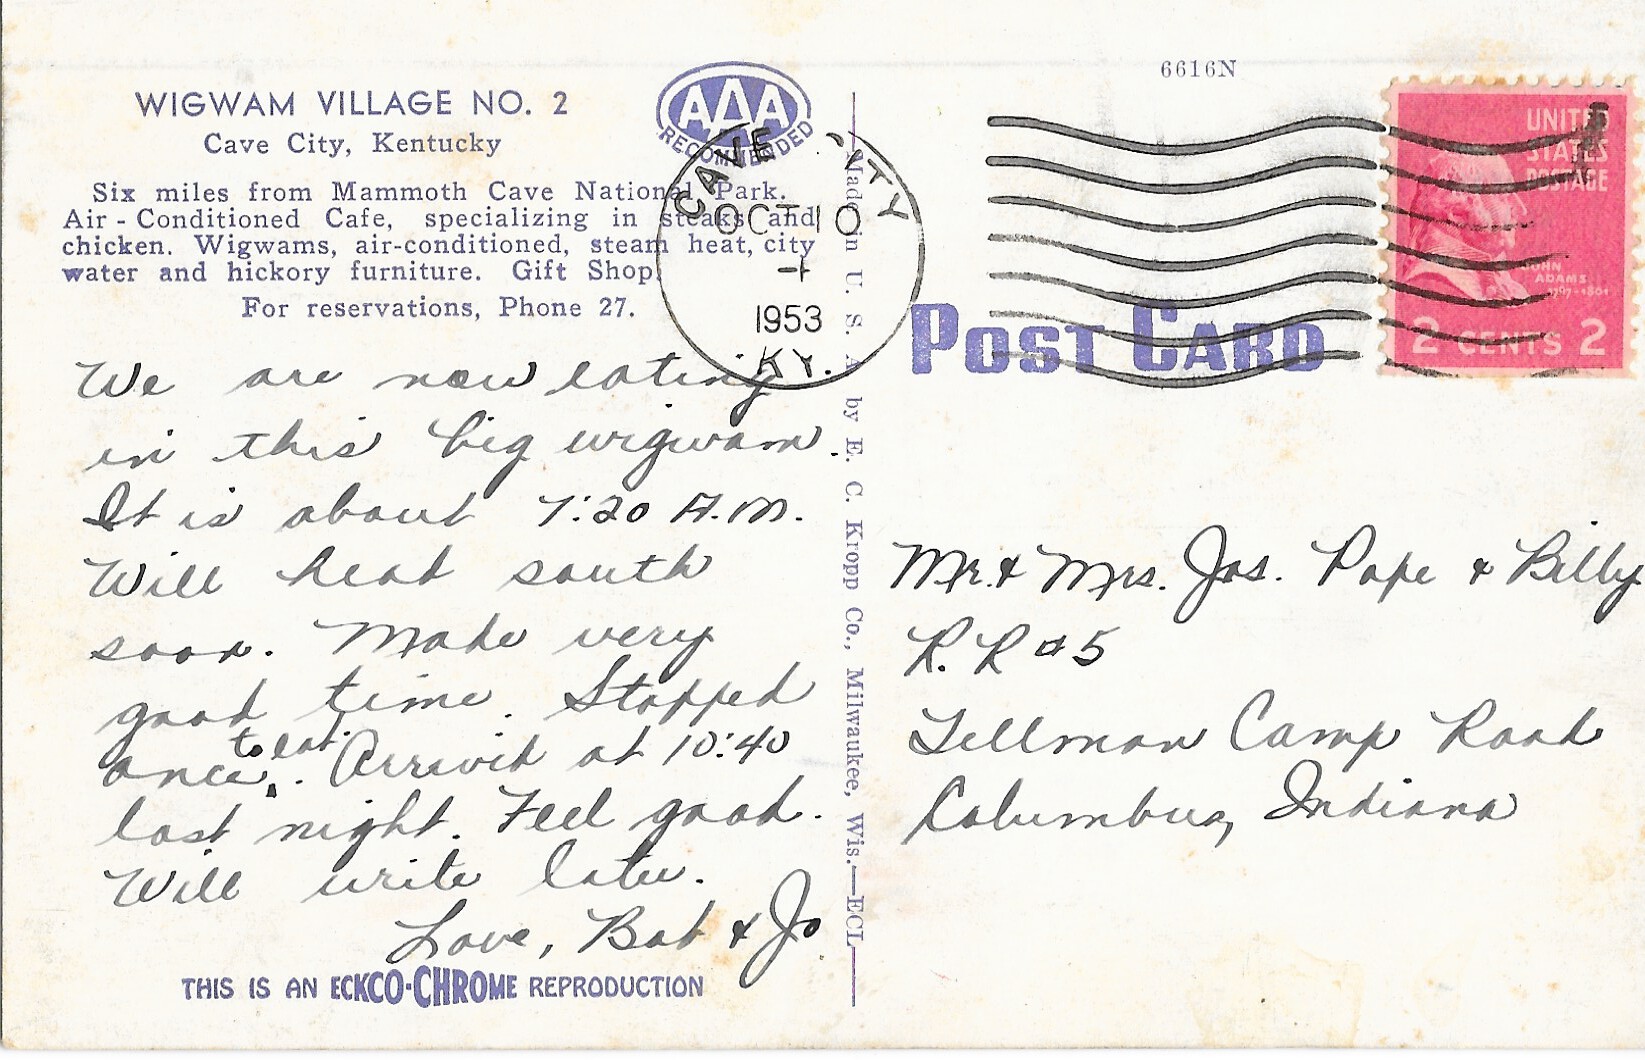 WIGWAM VILLAGE NO. 2
Cave City, Kentucky
Six miles from Mammoth Cave National Park.
Air - Conditioned Cafe, specializing in steaks and
chicken. Wigwams, air-conditioned, steam heat, city
water and hickory furniture. Gift Shop.
For reservations, Phone 27.
AAA
RECOMMENDED
We are now eating
in this big wigwam.
It is about 7:20 A.M.
Will head south
soon. Made very
good time. Stopped
once to eat. Arrived at 10:40
last night. Feel good.
Will write later.
Love, Bob & Jo
THIS IS AN ECKCO-CHROME REPRODUCTION
Made in U. S. A. by E. C. Kropp Co., Milwaukee, Wis.—ECL
CAVE CITY
OCT 10
1953
KY.
6616N
POST CARD
UNITED
STATES
POSTAGE
JOHN
ADAMS
1797-1801
2 CENTS 2
Mr. & Mrs. Jos. Pape & Billy
R. R #5
Tellman Camp Road
Columbus, Indiana